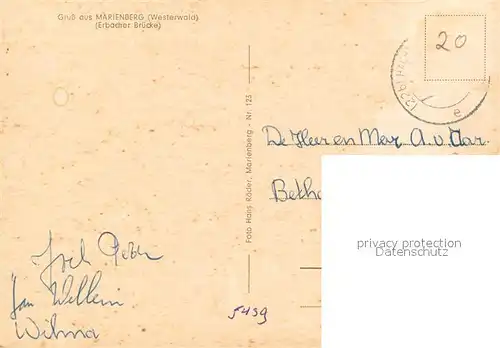 Gruß aus MARIENBERG (Westerwald)
(Erbacher Brücke)
20
e
Foto Hans Röder, Marienberg - Nr 123
De Heer en Mev A.v. Car
Beth
privacy protection
Datenschutz
Jan Willem
Wilma
5439